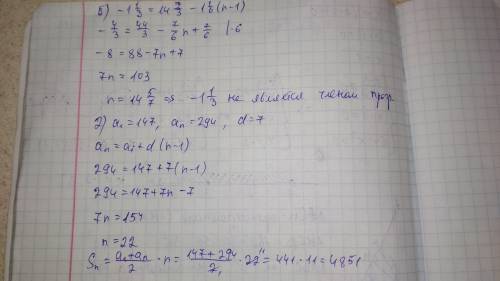 б) -1 1/3 = 14 2/3 - 1 1/6 (n-1)
- 4/3 = 44/3 - 7/6 n + 7/6 |·6
-8 = 88 - 7n + 7
7n = 103
n = 14 5/7 => -1 1/3 не является членом прогр
2) a₁ = 147, aₙ = 294, d = 7
aₙ = a₁ + d (n-1)
294 = 147 + 7 (n-1)
294 = 147 + 7n - 7
7n = 154
n = 22
Sₙ = (a₁+aₙ)/2 · n = (147+294)/2 · 22 ¹¹ = 441 · 11 = 4851